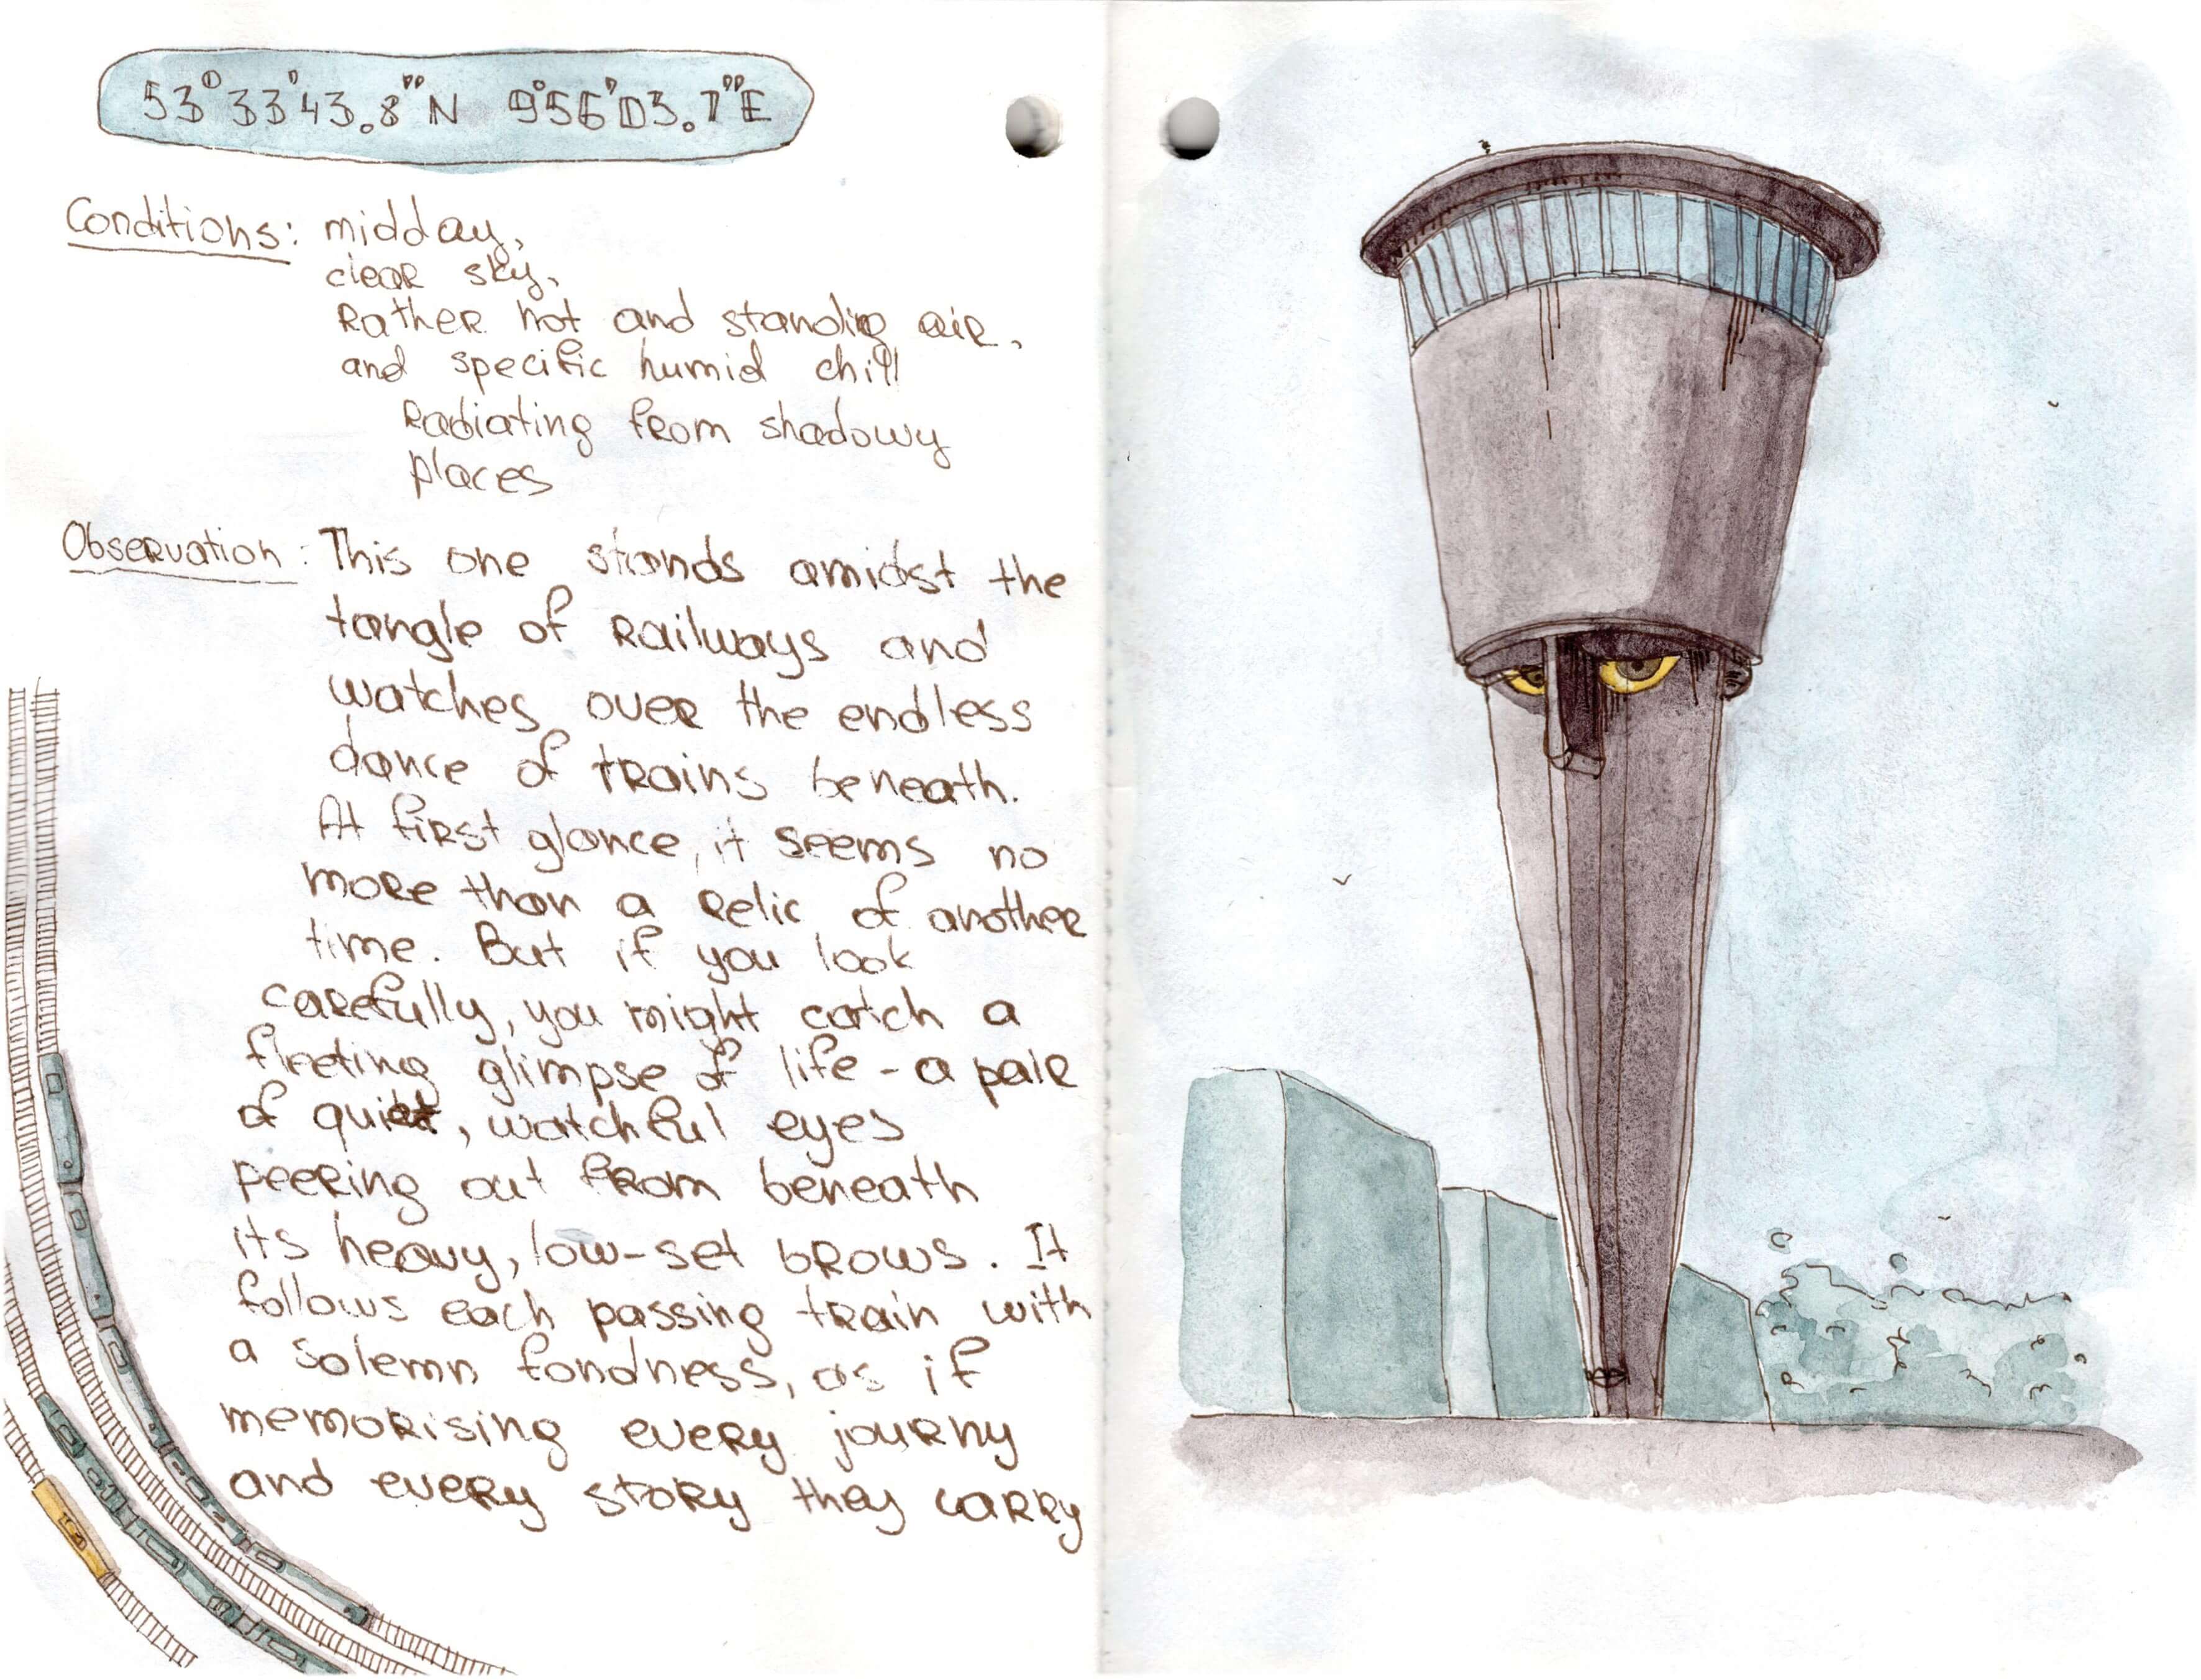 53°33'43.8"N 9°56'03.7"E
Conditions: midday,
clear sky,
Rather hot and standing air,
and specific humid chill
Radiating from shadowy
places
Observation: This one stands amidst the
tangle of Railways and
watches over the endless
dance of trains beneath.
At first glance, it seems no
more than a relic of another
time. But if you look
carefully, you might catch a
fleeting glimpse of life - a pair
of quiet, watchful eyes
peering out from beneath
its heavy, low-set brows. It
follows each passing train with
a solemn fondness, as if
memorising every journy
and every story they carry